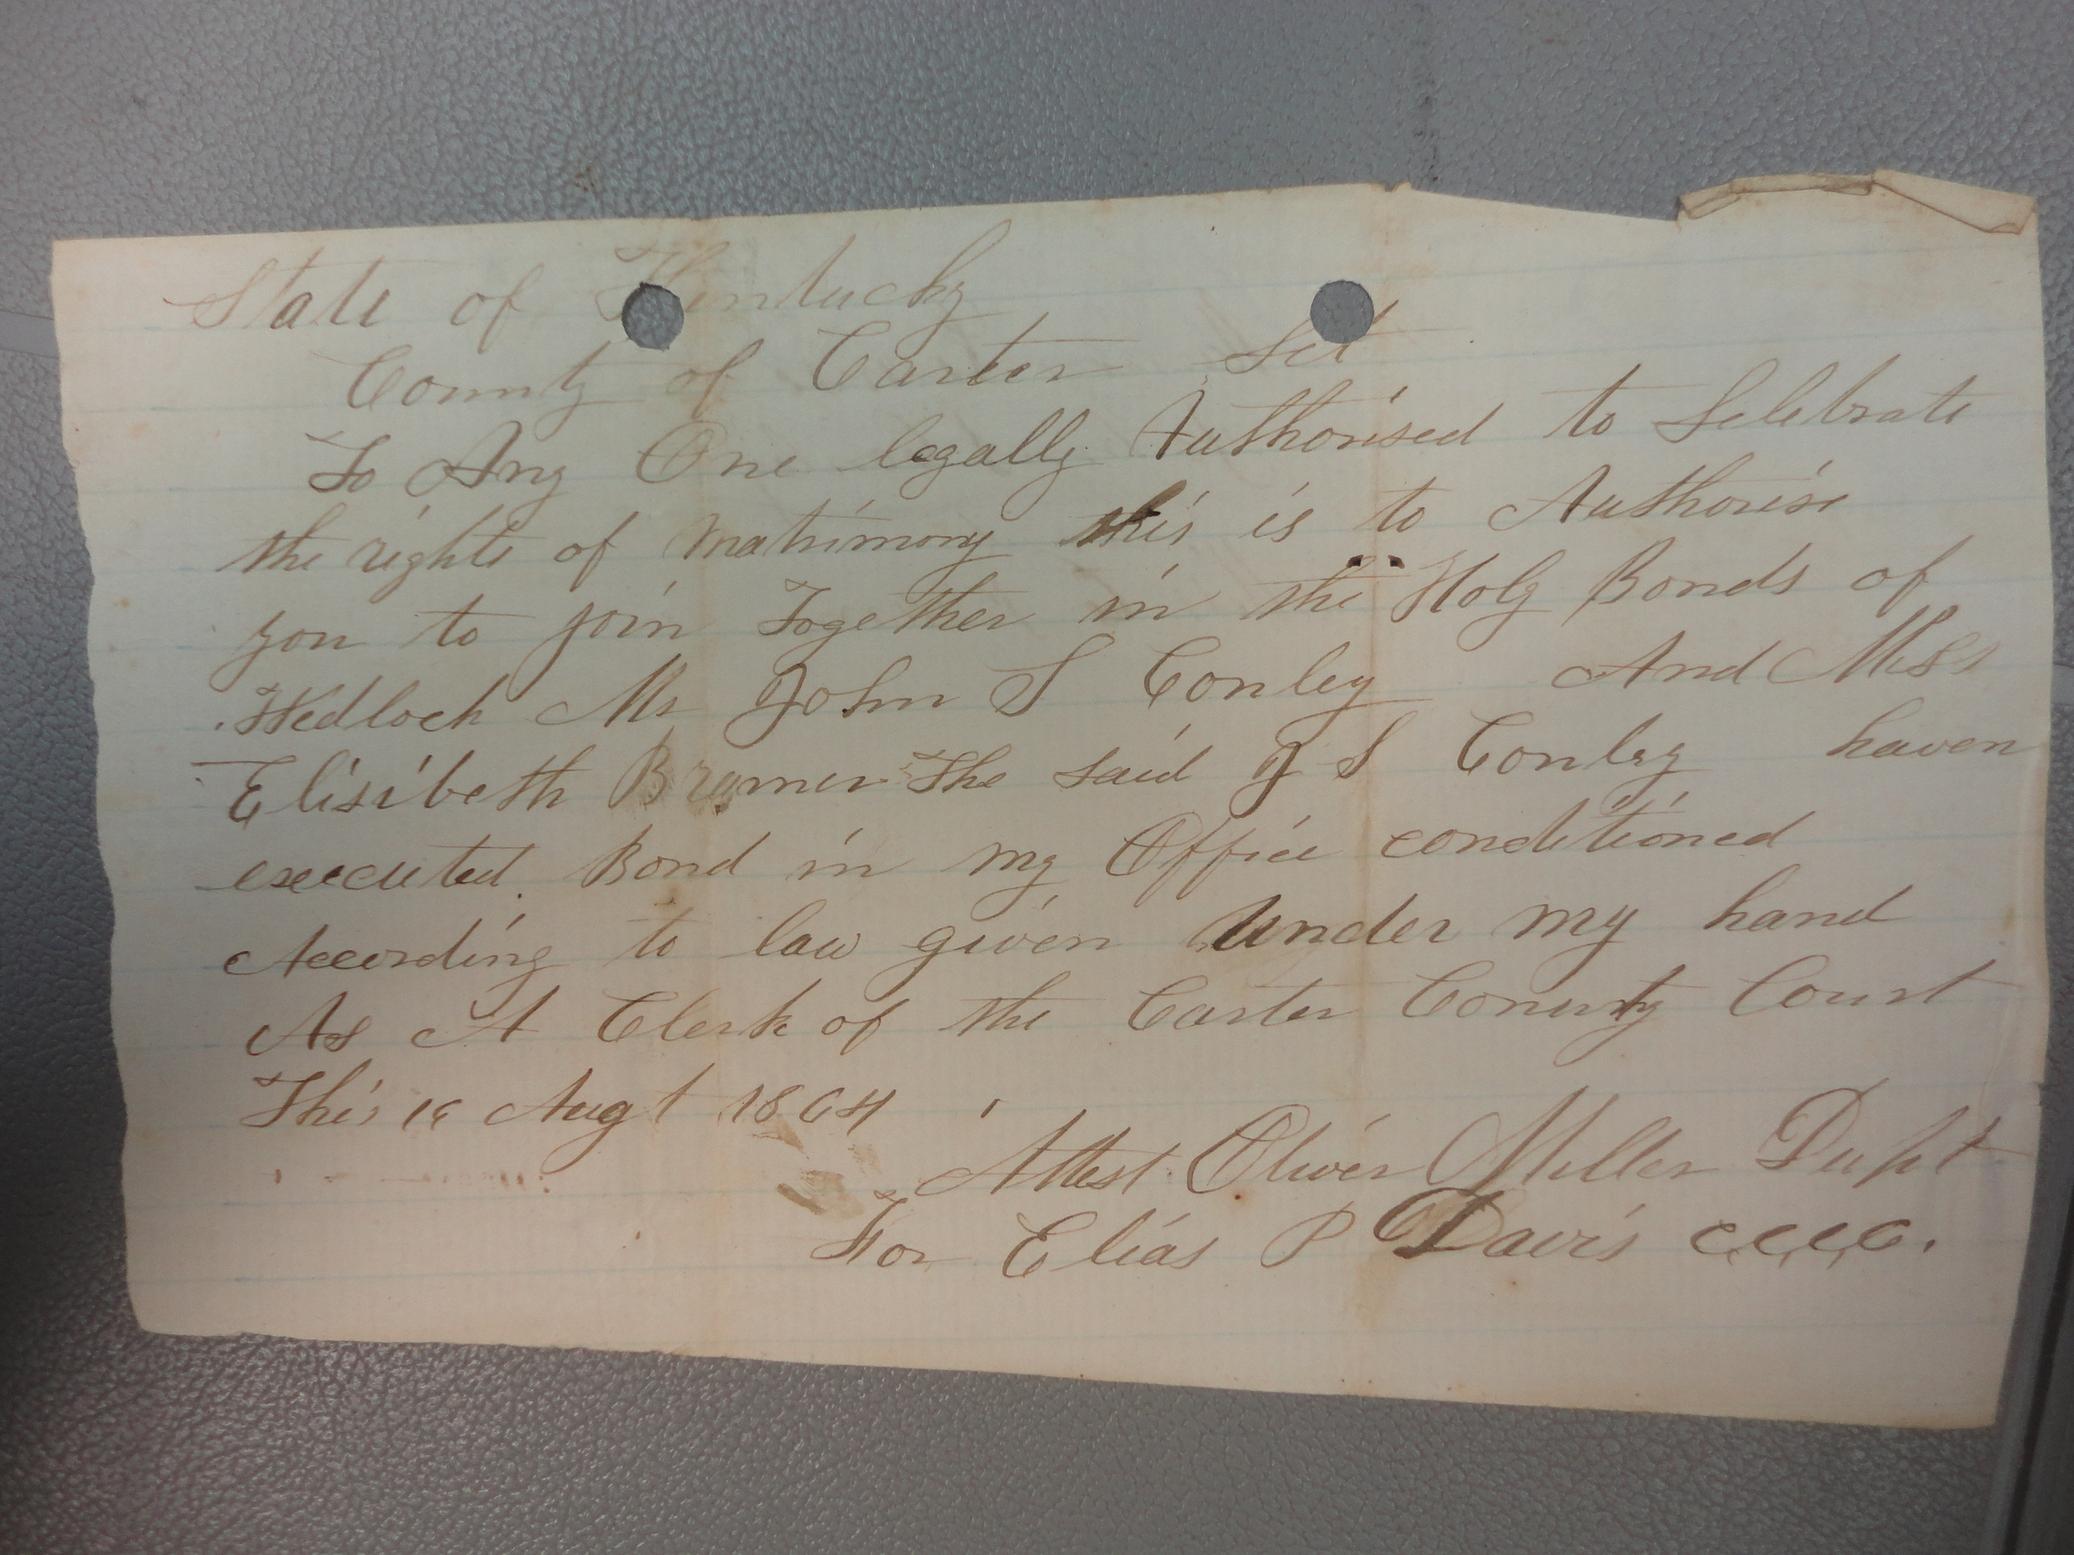 State of Kentucky
County of Carter Sct
To Any One legally Authorised to Selebrate
the rights of matrimony this is to Authorise
you to join Together in the Holy Bonds of
Wedlock Mr John S Conley And Miss
Elisibeth The said J S Conley haven
executed Bond in my Office conditioned
According to law given under my hand
As A Clerk of the Carter County Court
This Augt 1864
Attest Oliver Miller Dupt
For Elias P Davis CCCC.